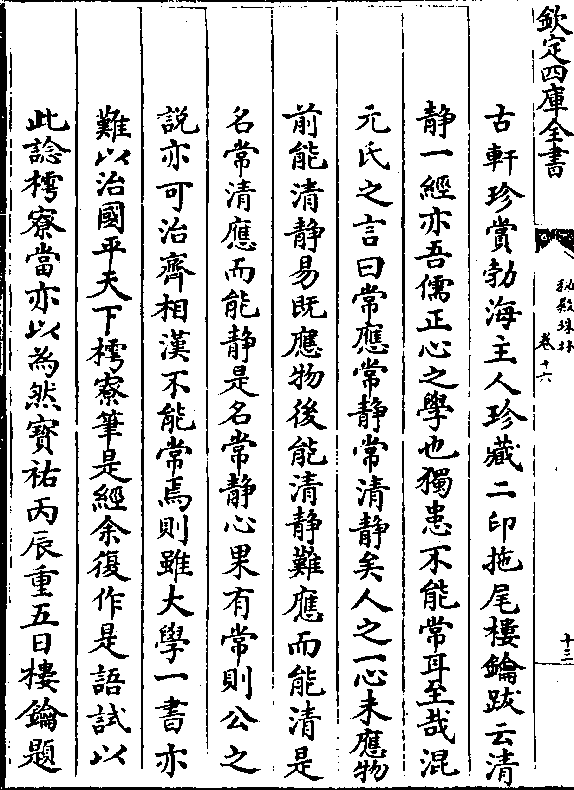 欽定四庫全書
秘殿珠林
卷十六
十三
古軒珍賞勃海主人珍藏二印拖尾樓鑰跋云清
静一經亦吾儒正心之學也獨患不能常耳至哉混
元氏之言曰常應常静常清静矣人之一心未應物
前能清静易既應物後能清静難應而能清是
名常清應而能静是名常静心果有常則公之
説亦可治齊相漢不能常焉則雖大學一書亦
難以治國平天下樗寮筆是經余復作是語試以
此諗樗寮當亦以為然寳祐丙辰重五日樓鑰題